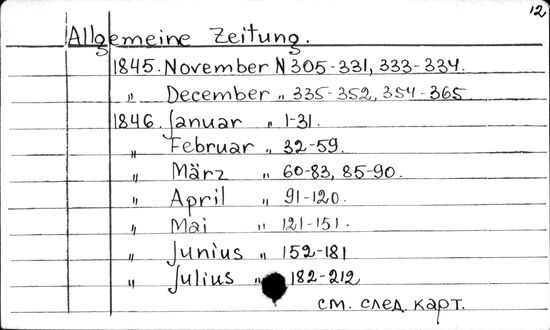 12
Allgemeine Zeitung.
1845. November N 305-331, 333-334.
„ December „ 335-352, 354-365
1846. Januar „ 1-31.
„ Februar „ 32-59.
„ März „ 60-83, 85-90.
„ April „ 91-120.
„ Mai „ 121-151.
„ Junius „ 152-181
„ Julius „ 182-212
см. след. карт.